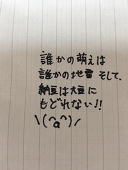 誰かの萌えは
誰かの地雷 そして、
納豆は大豆に
もどれない!!
\(^q^)/